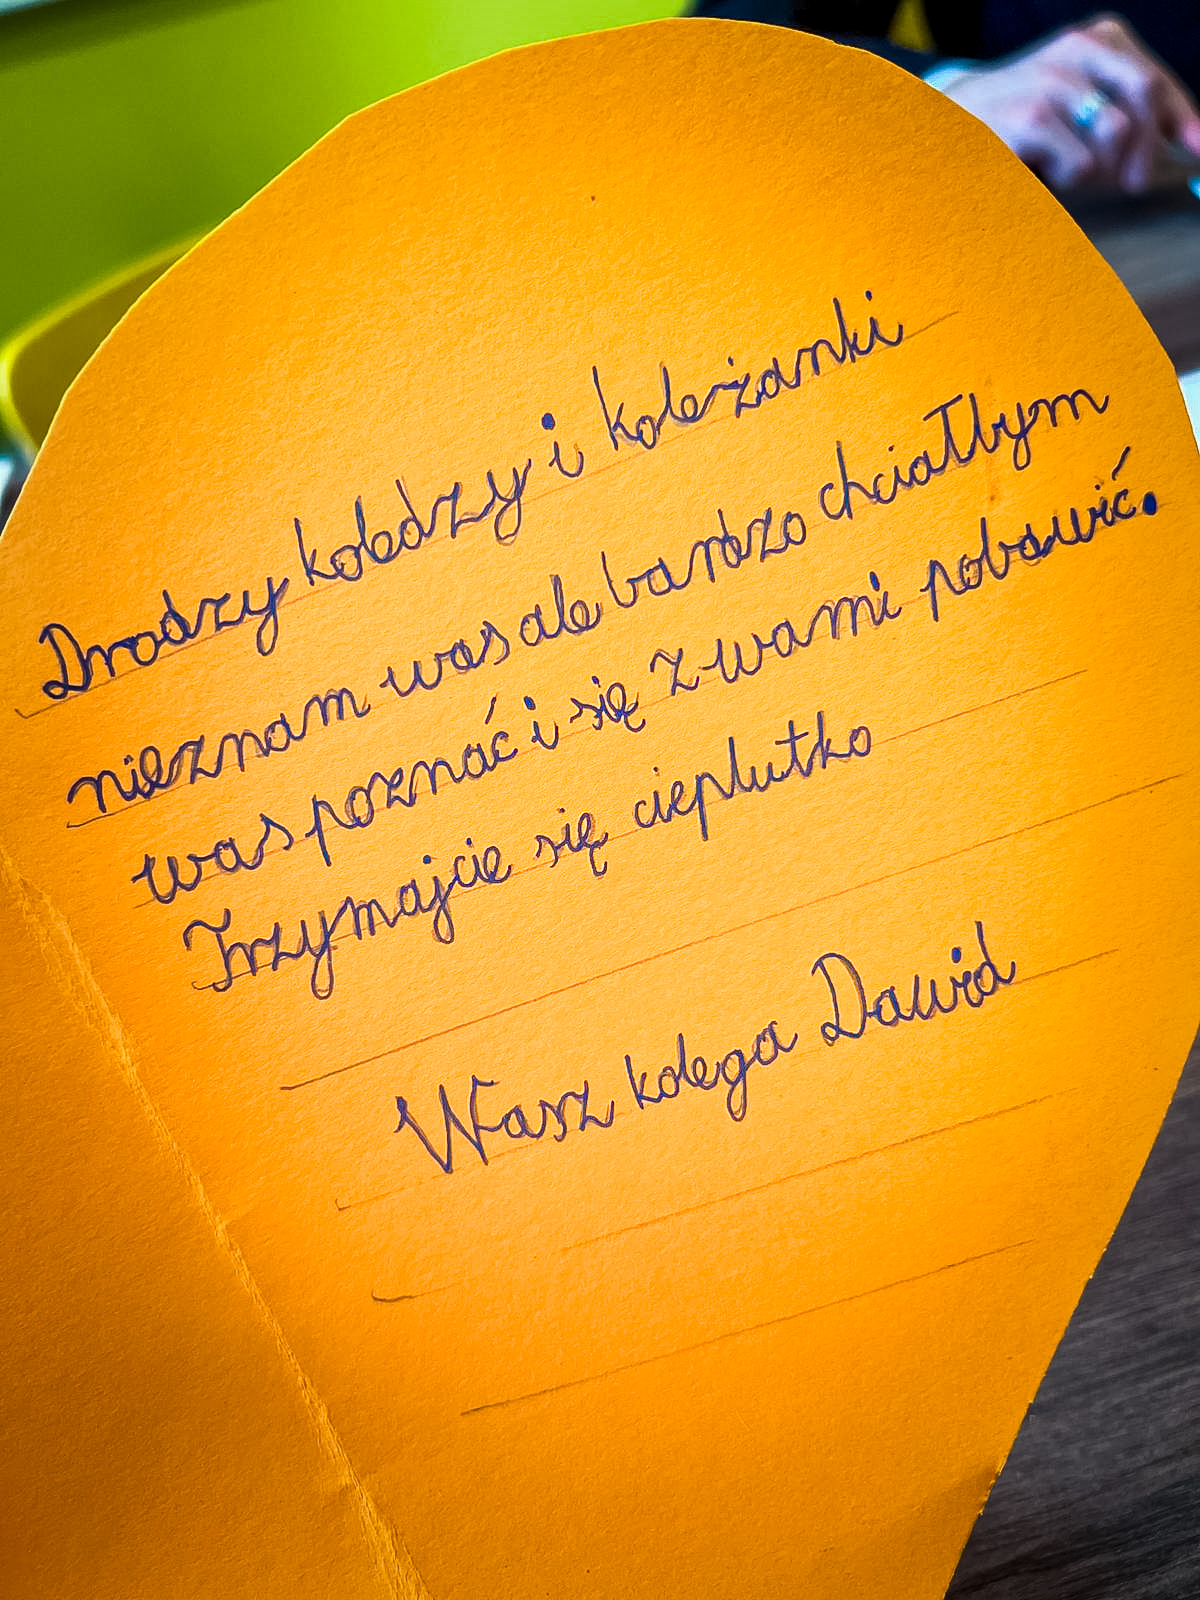 Drodzy koledzy i koleżanki
nieznam was ale bardzo chciałbym
was poznać i się z wami pobawić.
Trzymajcie się cieplutko
Wasz kolega Dawid